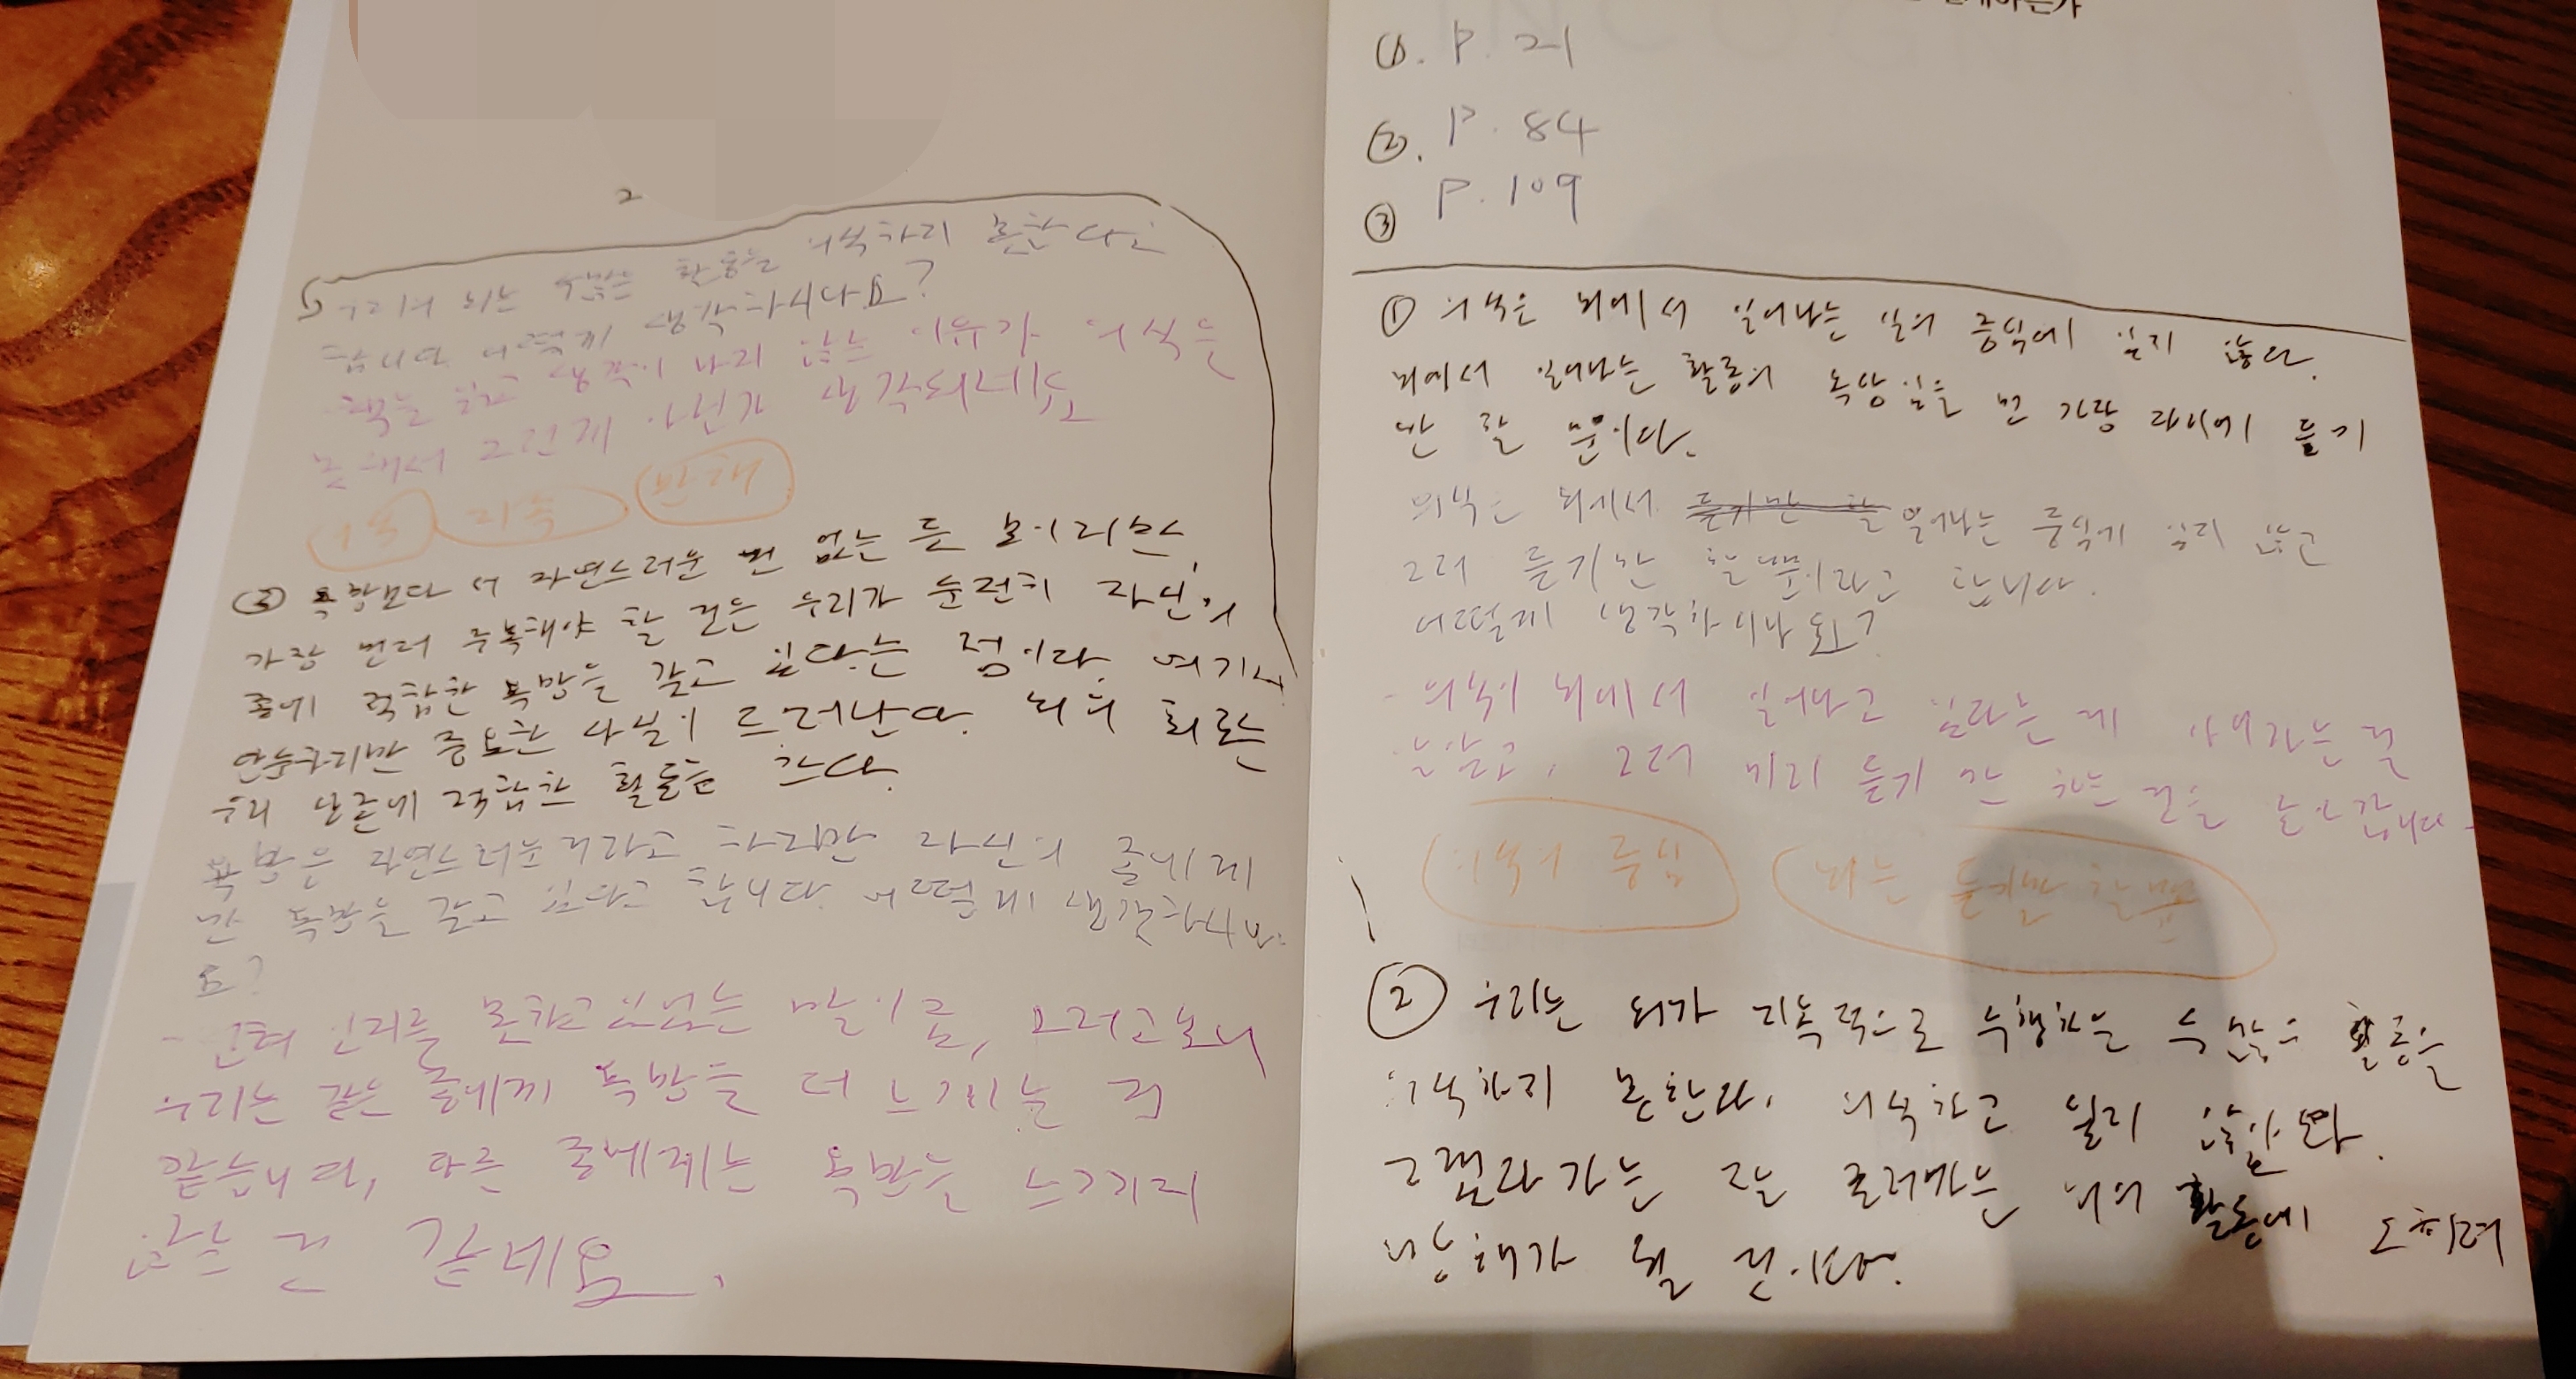 ①. P. 21
②. P. 84
③ P. 109
① 의식은 뇌에서 일어나는 일의 중심에 있지 않다.
뇌에서 일어나는 활동의 속삭임을 먼 가장자리에서 듣기
만 할 뿐이다.
의식은 뇌에서 듣기만 할 일어나는 중심에 있지 않고
그저 듣기만 할뿐이라고 합니다.
어떻게 생각하시나요?
- 의식이 뇌에서 일어나고 있다는 게
그저 듣기만 하는 것은
의식의 중심
뇌는 듣기만 할뿐
② 우리는 뇌가 지속적으로 수행하는 수많은 활동을
의식하지 못한다. 의식하고 싶지 않을 것이다.
그랬다가는 잘 흘러가는 뇌의 활동에 도리어
방해가 될 것이다.
2
우리의 뇌는 수많은 활동을 의식하지 못한다고
합니다 어떻게 생각하시나요?
책을 읽고 생각이 나지 않는 이유가 의식을
못해서 그런게 아닌가 생각되네요
의식 지속 방해
③ 욕망보다 더 자연스러운 건 없는 듯 보이지만,
가장 먼저 주목해야 할 것은 우리가 순전히 자신의
종에 적합한 욕망을 갖고 있다는 점이다. 여기서
단순하지만 중요한 사실이 드러난다. 뇌의 회로는
우리 생존에 적합한 활동을 한다.
욕망은 자연스러운거라고 하지만 자신의 종에게
만 욕망을 갖고 있다고 합니다 어떻게 생각하시나
요?
- 전혀 인지를 못하고 있었는 말이죠, 그러고보니
우리는 같은 종에게 욕망을 더 느끼는 것
같습니다, 다른 종에게는 욕망을 느끼지
않는 것 같네요.